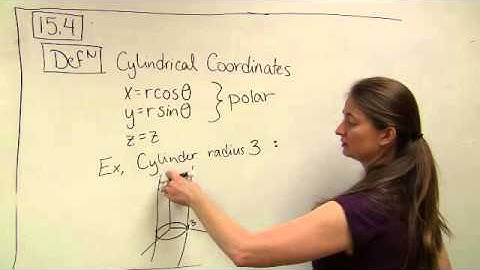 15.4
Defᴺ Cylindrical Coordinates
x=rcosθ
y=rsinθ } polar
z=z
Ex, Cylinder radius 3 :
3